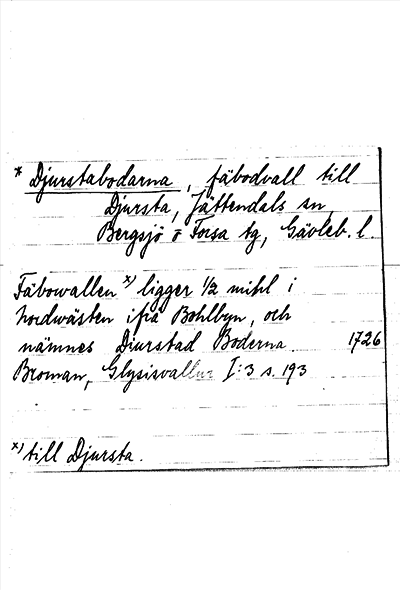 * Djurstabodarna, fäbodvall till
Djursta, Jättendals sn,
Bergsjö o Forsa tg, Gävleb. l.
Fäbowallen x) ligger 1/2 mihl i
nordwästen ifrå Bohlbyn, och
nämnes Diurstad Boderna. 1726
Broman, Glysisvallur I:3 s. 193
x) till Djursta.